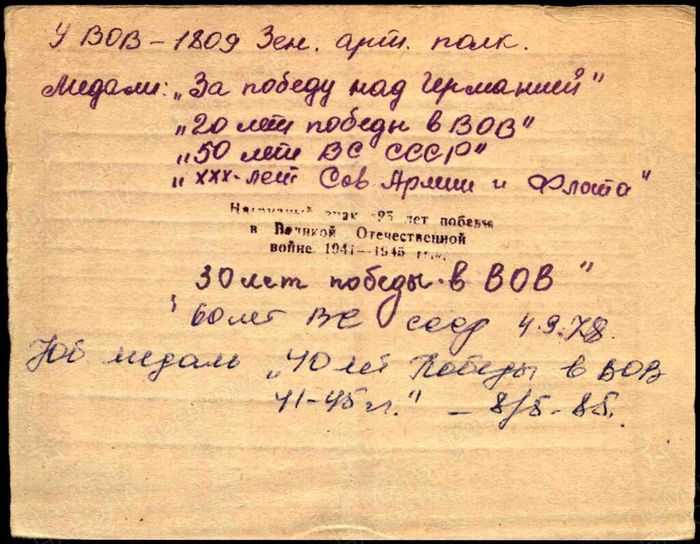 У ВОВ – 1809 Зен. арт. полк.
Медали: „За победу над Германией"
„20 лет победы в ВОВ"
„50 лет ВС СССР"
„XXX-лет Сов Армии и Флота"
Нагрудный знак «25 лет победы
в Великой Отечественной
войне 1941—1945 гг.»
30 лет победы в ВОВ"
60 лет ВС СССР 4.9.78.
Юб медаль „40 лет Победы в ВОВ
41-45 гг." – 8/5-85.